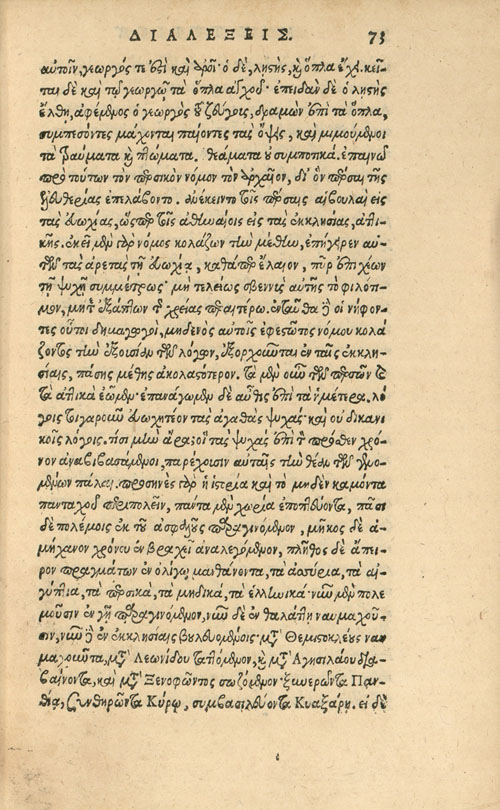 ΔΙΑΛΕΞΕΙΣ. 73
αὐτοῖν, γεωργός τε ἐστὶ καὶ ἀροῖ· ὁ δὲ, λῃστής, καὶ ὅπλα ἔχει. κεῖ-
ται δὲ καὶ τῷ γεωργῷ τὰ ὅπλα ἀγχοῦ· ἐπειδὰν δὲ ὁ λῃστὴς
ἔλθῃ, ἀφέμενος ὁ γεωργὸς τοῦ ζεύγους, δραμὼν ἐπὶ τὰ ὅπλα,
συμπεσόντες μάχονται παίοντες τὰς ὄψεις, καὶ μιμούμενοι
τὰ τραύματα καὶ πτώματα. θεάματα οὐ συμποτικά. ἐπαινῶ
πρὸ τούτων τὸν περσικὸν νόμον τὸν ἀρχαῖον, δι' ὃν πέρσαι τῆς
ἐλευθερίας ἐπελάβοντο. ἀνέκειντο τοῖς πέρσαις αἱ βουλαὶ εἰς
τὰς εὐωχίας, ὥσπερ τοῖς ἀθηναίοις εἰς τὰς ἐκκλησίας, ἀττι-
κῆς. ἐκεῖ μὲν γὰρ νόμος κολάζων τὴν μέθην, ἐπήγειρεν αὐ-
τῶν τὰς ἀρετὰς τῇ εὐωχίᾳ, καθάπερ ἔλαιον, πῦρ ἐπιχέων
τῇ ψυχῇ συμμέτρως· μὴ τελείως σβεννὺς αὐτῆς τὸ φιλότι-
μον, μήτ' ἐξάπτων τῆς χρείας περαιτέρω. ἐνταῦθα δὲ οἱ νήφον-
τες οὗτοι δημαγωγοὶ, μηδενὸς αὐτοῖς ἐφεστῶτος νόμου κολά
ζοντος τὴν ἐξουσίαν τῶν λόγων, ἐξορχοῦνται ἐν ταῖς ἐκκλη-
σίαις, πάσης μέθης ἀκολαστότερον. τὰ μὲν οὖν τῶν περσῶν καὶ
τὰ ἀττικὰ ἐῶμεν· ἐπανάγωμεν δὲ αὖθις ἐπὶ τὰ ἡμέτερα. λό
γοις τοιγαροῦν εὐωχητέον τὰς ἀγαθὰς ψυχάς· καὶ οὐ δικανι
κοῖς λόγοις. τίσι μὴν ἄρα; οἳ τὰς ψυχὰς ἐπὶ τὸν πρόσθεν χρό-
νον ἀναβιβασάμενοι, παρέχοισιν αὐταῖς τὴν θέαν τῶν γενο-
μένων πάλαι. προσηνὲς γὰρ ἡ ἱστορία καὶ τὸ μηδὲν καμόντα
πανταχοῦ περιπολεῖν, πάντα μὲν χωρία ἐποπτεύοντα, πᾶσι
δὲ πολέμοις ἐκ τοῦ ἀσφαλοῦς παραγινόμενον, μῆκος δὲ ἀ-
μήχανον χρόνου ἐν βραχεῖ ἀναλεγόμενον, πλῆθος δὲ ἄπει-
ρον πραγμάτων ἐν ὀλίγῳ μανθάνοντα, τὰ ἀσσύρια, τὰ αἰ-
γύπτια, τὰ περσικὰ, τὰ μηδικὰ, τὰ ἑλληνικά· νῦν μὲν πολε
μοῦσιν ἐν γῇ παραγινόμενον, νῦν δὲ ἐν θαλάττῃ ναυμαχοῦ-
σιν, νῦν δὲ ἐν ἐκκλησίαις βουλευομένοις· μετὰ Θεμιστοκλέους ναυ
μαχοῦντα, μετὰ Λεωνίδου ταττόμενον, καὶ μετὰ Ἀγησιλάου δια-
βαίνοντα, καὶ μετὰ Ξενοφῶντος σωζόμενον· ξυνερῶντα Παν-
θείᾳ, ξυνθηρῶντα Κύρῳ, συμβασιλεύοντα Κυαξάρῃ. εἰ δὲ